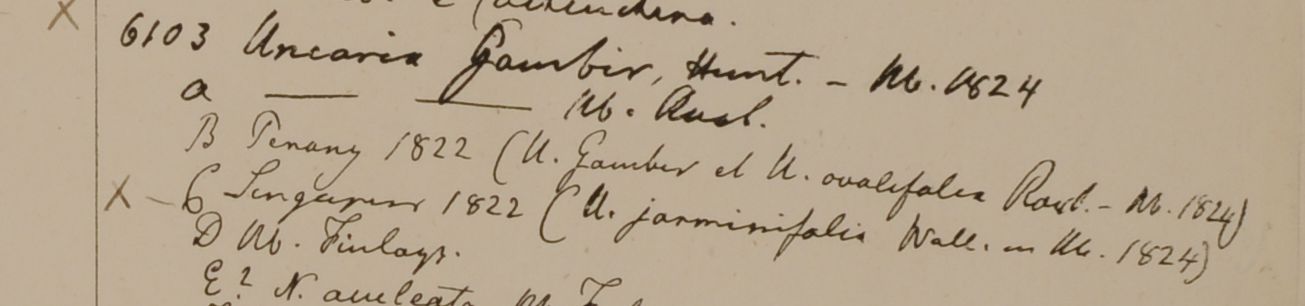 Cochinchina.
X 6103 Uncaria Gambir, Hunt. - Hb. 1824
a — — Hb. Roxb.
B Penang 1822 (U. Gambir et U. ovalifolia Roxb. - Hb. 1824)
X - C Singapur 1822 (U. jasminifolia Wall. in Hb. 1824)
D Hb. Finlays.
E? N. aculeata Hb.